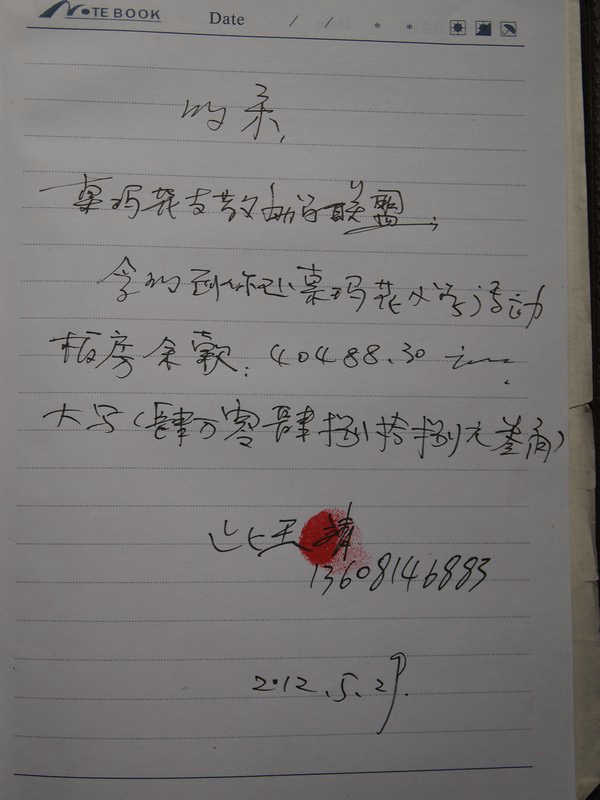 NOTEBOOK Date / /
收条
桌玛花支教助学联盟
今收到你处桌玛花小学活动
板房余款：40488.30元
大写（肆万零肆捌拾捌元叁角）
王
13608146883
2012.5.29.